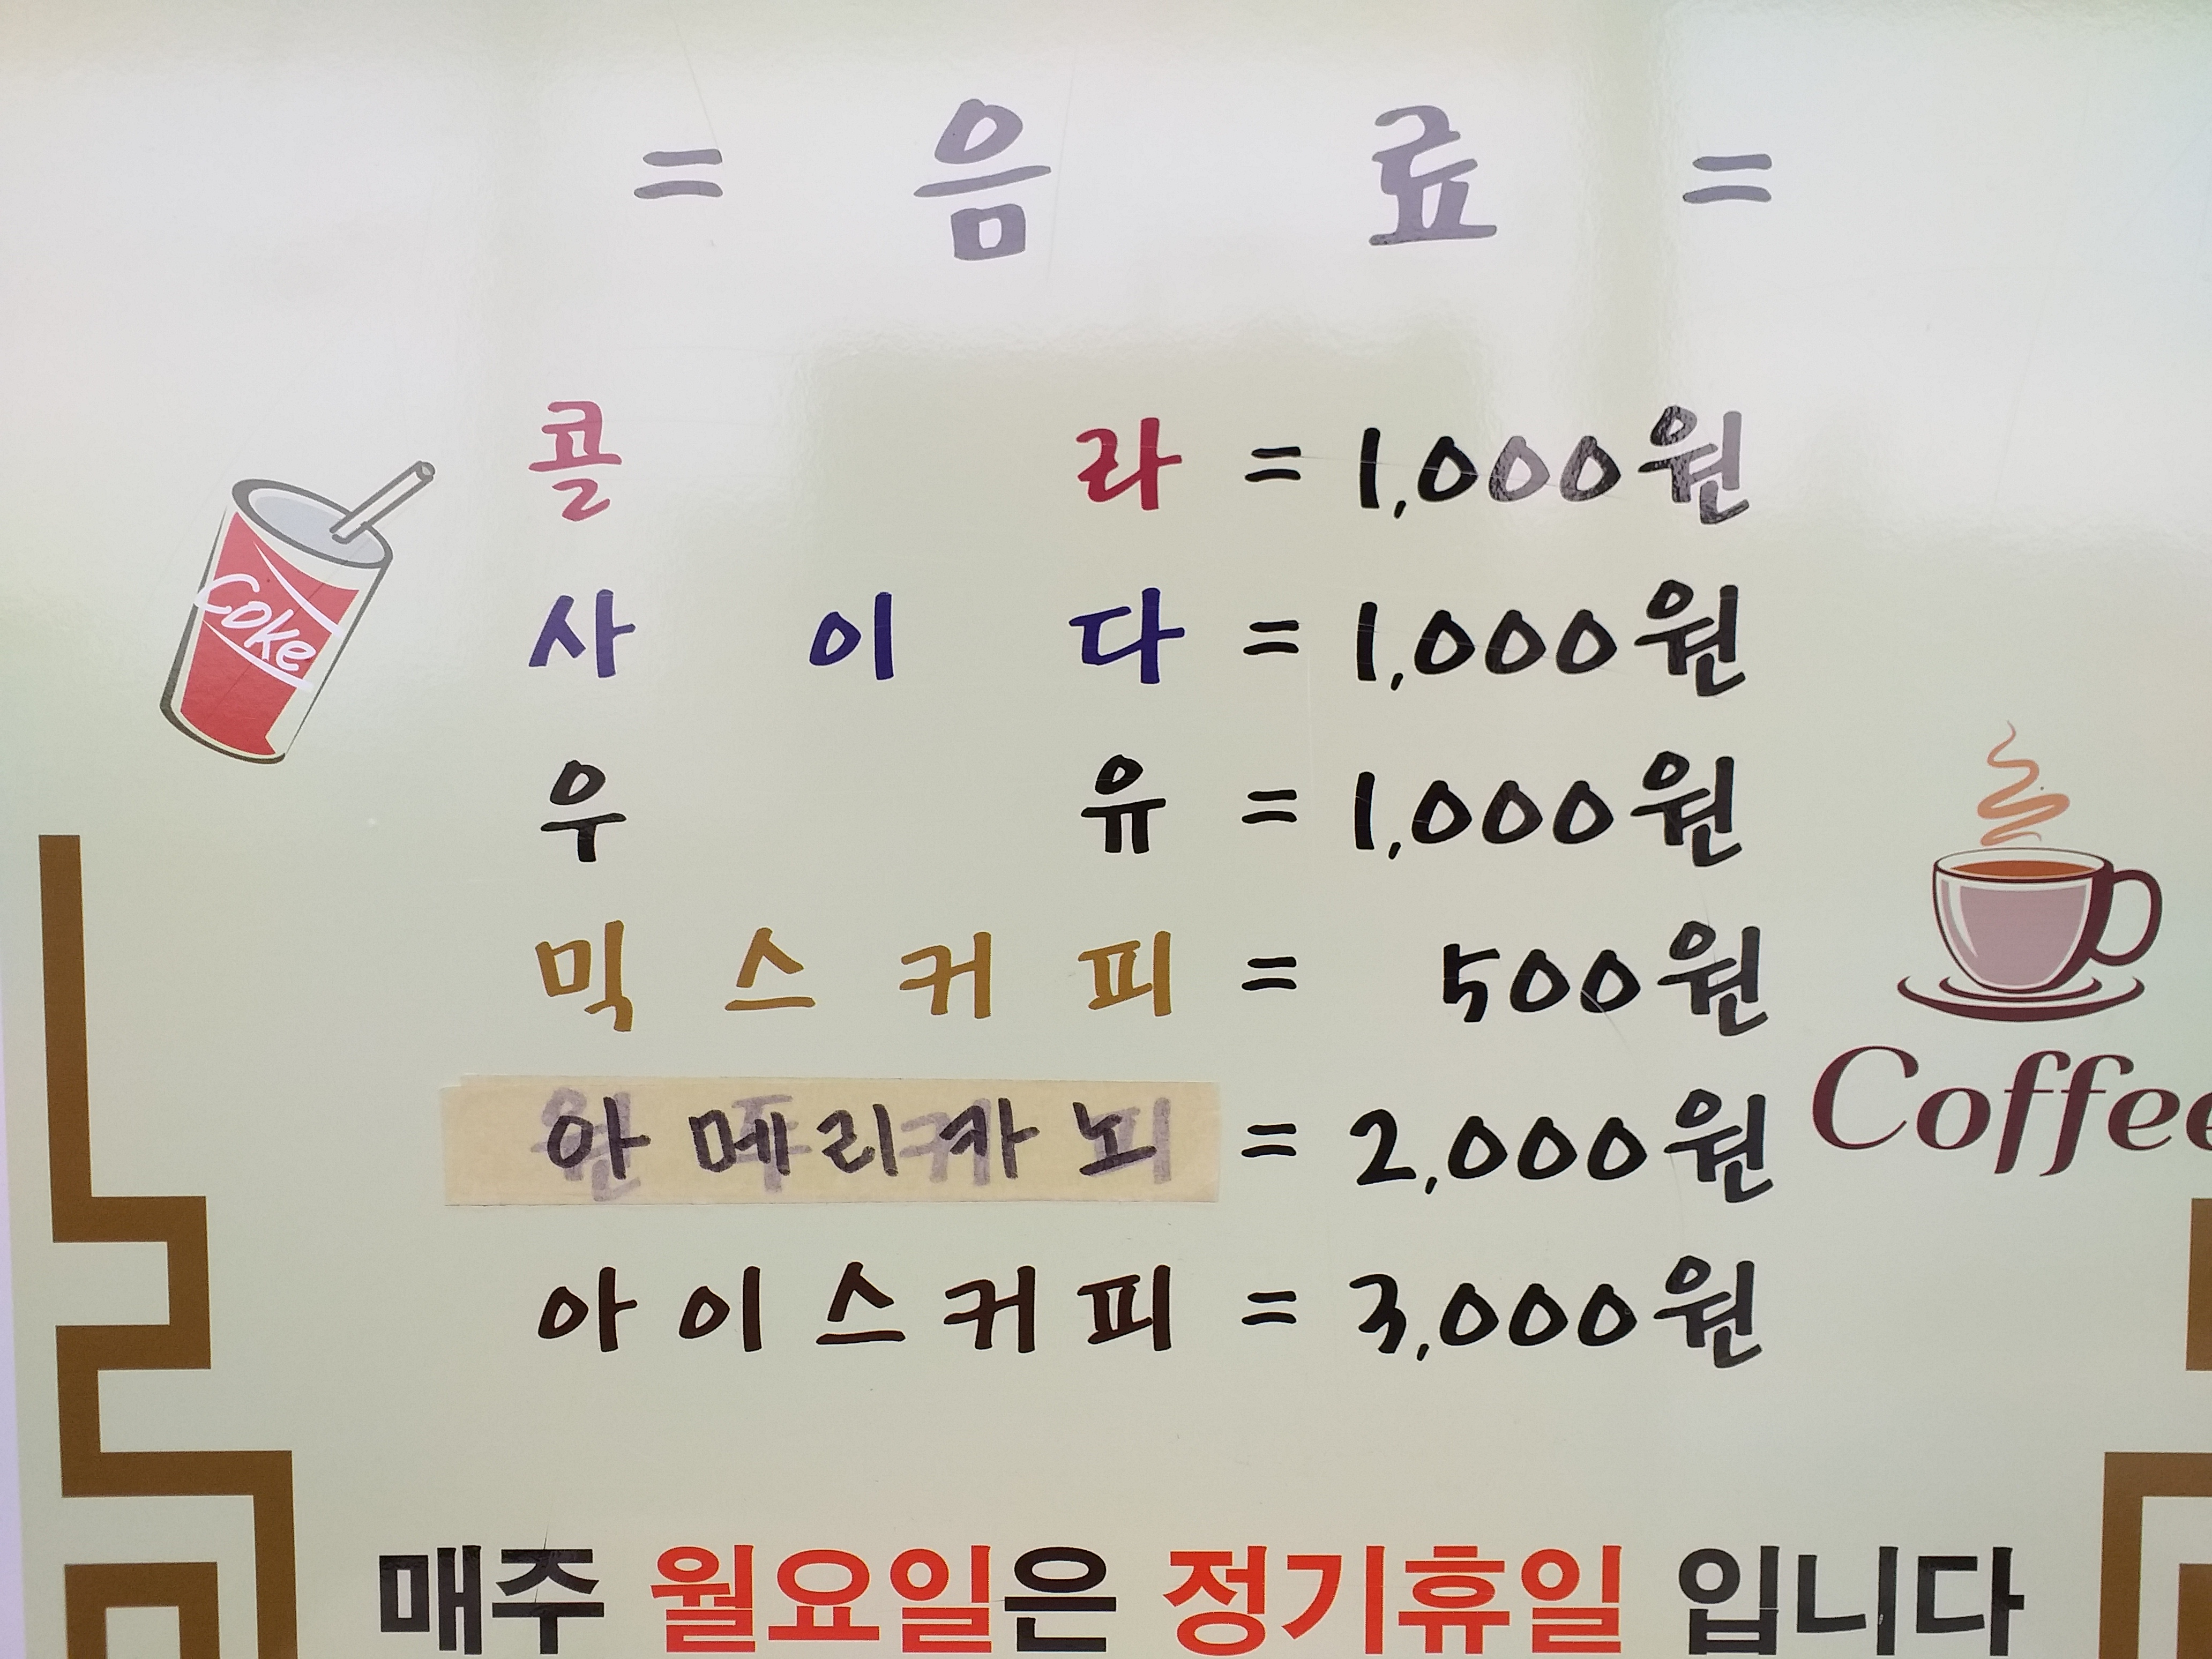 = 음 료 =
콜 라 = 1,000원
Coke
사 이 다 = 1,000원
우 유 = 1,000원
믹 스 커 피 = 500원
아 메 리 카 노 = 2,000원
Coffee
아 이 스 커 피 = 3,000원
매주 월요일은 정기휴일 입니다